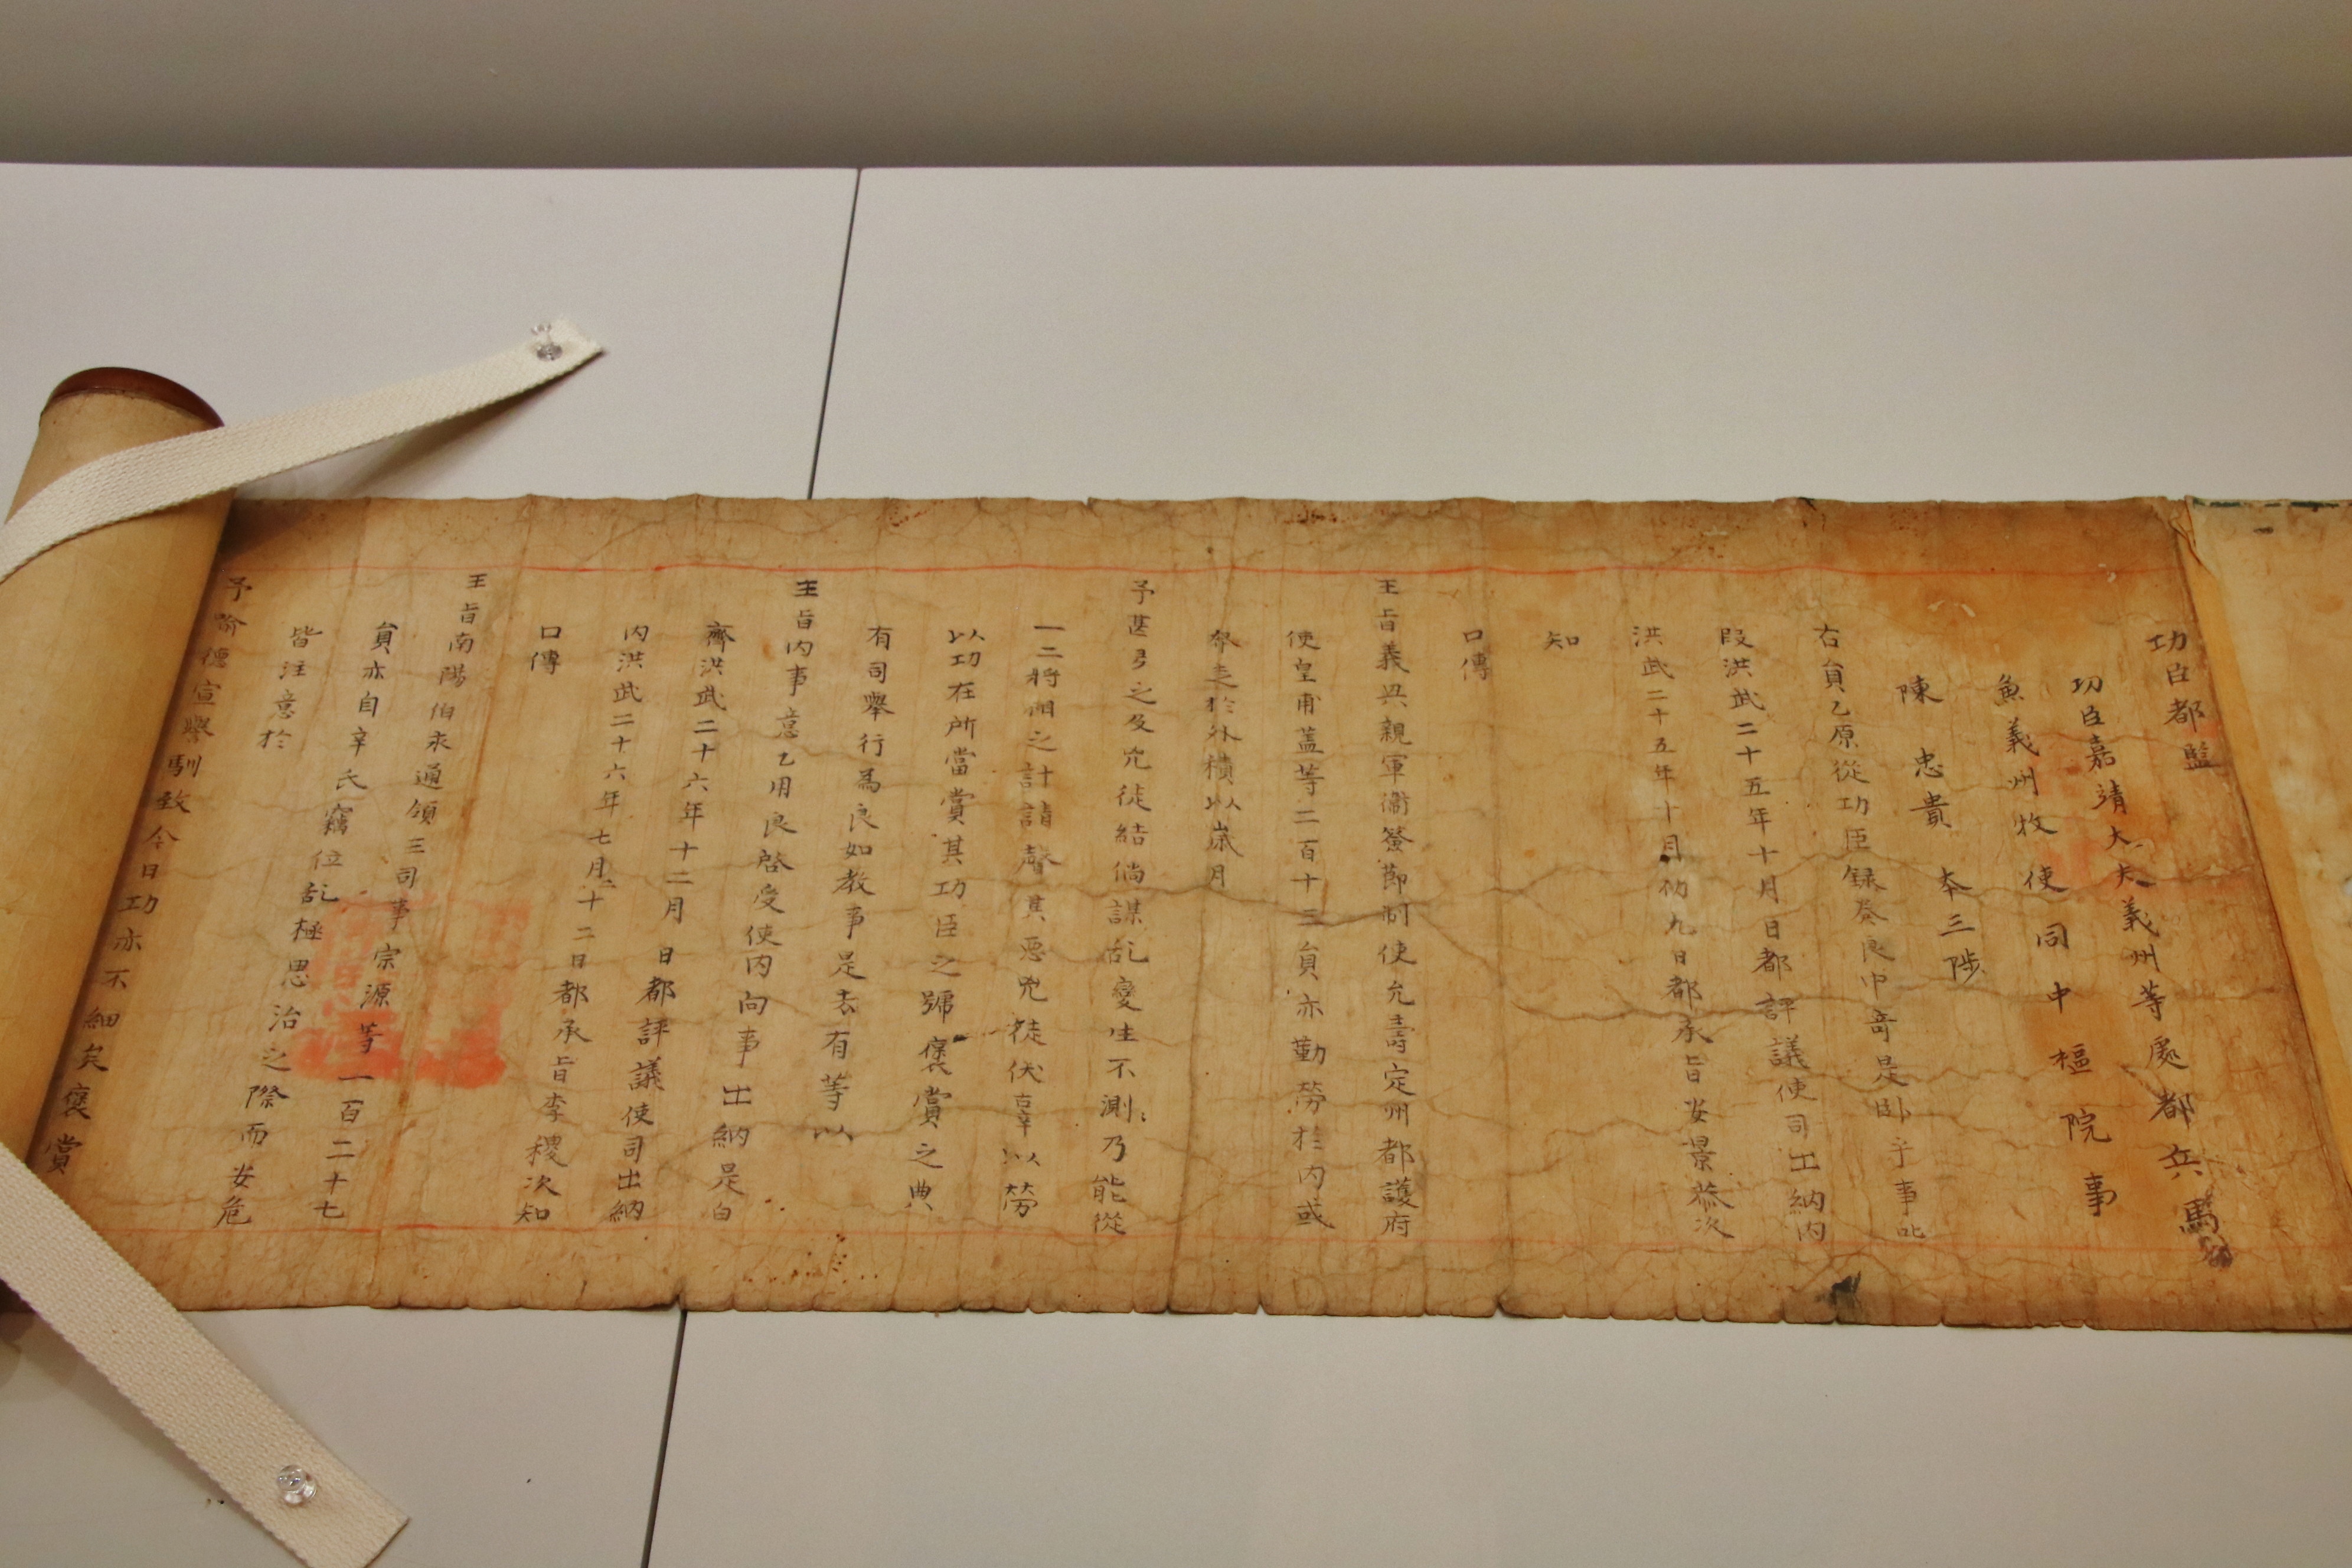 功臣都監
功臣嘉靖大夫義州等處都兵馬
兼義州牧使同中樞院事
陳忠貴 本三陟
右員乙原從功臣録券良中奇是卧乎事叱
段洪武二十五年十月日都評議使司出納内
洪武二十五年十月初九日都承旨安景恭次
知
口傳
王旨義興親軍衛僉節制使允壽定州都護府
使皇甫蓋等二百十三員亦勤勞於内或
奔走於外積以歳月
予甚之及兇徒結倘謀乱變生不測乃能從
一二將相之計請聲其惡兇徒伏辜以勞
以功在所當賞其功臣之號褒賞之典
有司擧行爲良如教事是去有等以
王旨内事意乙用良啓受使内向事出納是白
齊洪武二十六年十二月日都評議使司出納
内洪武二十六年七月二十二日都承旨李稷次知
口傳
王旨南陽伯永通領三司事宗源等一百二十七
員亦自辛氏竊位乱極思治之際而安危
皆注意於
予喻德宣譽馴致今日功亦不細矣褒賞